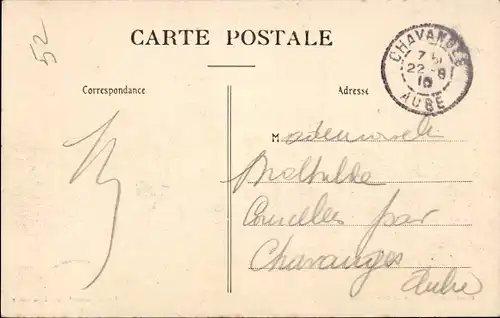 52
CARTE POSTALE
Correspondance
Adresse
CHAVANGES
7 51
22-8
10
AUBE
Mademoiselle
Mathilde
Courcelles par
Chavanges
Aube